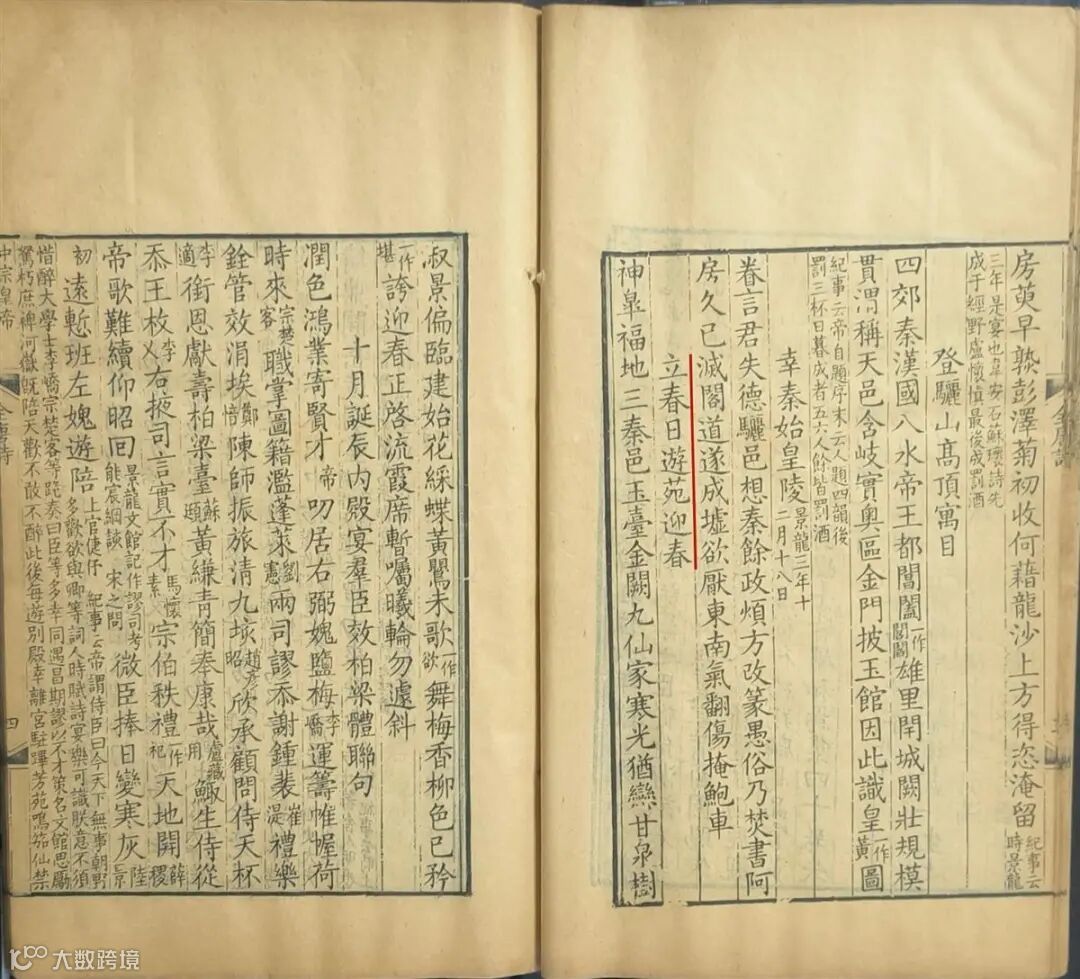 房萸早熟彭澤菊初收何藉龍沙上方得恣淹留紀事云時景龍
三年是宴也韋安石蘇瓌詩先成于經野盧懷慎最後成罰酒
登驪山高頂寓目
四郊秦漢國八水帝王都閶闔一作閭閻雄里閈城闕壯規模
貫渭稱天邑含岐實奧區金門披玉館因此識皇一作黃圖
紀事云帝自題序末云人題四韻後罰三杯日暮成者五六人餘皆罰酒
幸秦始皇陵景龍三年十二月十八日
眷言君失德驪邑想秦餘政煩方改篆愚俗乃焚書阿
房久已滅閣道遂成墟欲厭東南氣翻傷掩鮑車
立春日遊苑迎春
神皐福地三秦邑玉臺金闕九仙家寒光猶戀甘泉樹
淑景偏臨建始花綵蝶黃鶯未歌一作欲舞梅香柳色已矜
一作堪誇迎春正啓流霞席暫囑曦輪勿遽斜
十月誕辰内殿宴羣臣效柏梁體聯句
潤色鴻業寄賢才帝叨居右弼媿鹽梅李嶠運籌帷幄荷
時來宗楚客職掌圖籍濫蓬萊劉憲兩司謬忝謝鍾裴崔湜禮樂
銓管效涓埃鄭愔陳師振旅清九垓趙彥昭欣承顧問侍天杯
李適銜恩獻壽柏梁臺蘇頲黃縑青簡奉康哉盧藏用鯫生侍從
忝王枚李乂右掖司言實不才馬懷素宗伯秩禮一作祀天地開薛稷
帝歌難續仰昭回景龍文館記作謬司考能宸綱該宋之問微臣捧日變寒灰陸景
初遠慙班左媿遊陪上官倢伃紀事云帝謂侍臣曰今天下無事朝野多歡欲與卿等詞人時賦詩宴樂可識朕意不須
惜醉大學士李嶠宗楚客等跪奏曰臣等多幸同遇昌期謬以不才策名文館思勵
駑朽庶裨河嶽既陪天歡不敢不醉此後每遊別殿幸離宮駐蹕芳苑鳴笳仙禁
中宗皇帝
四
大数跨境